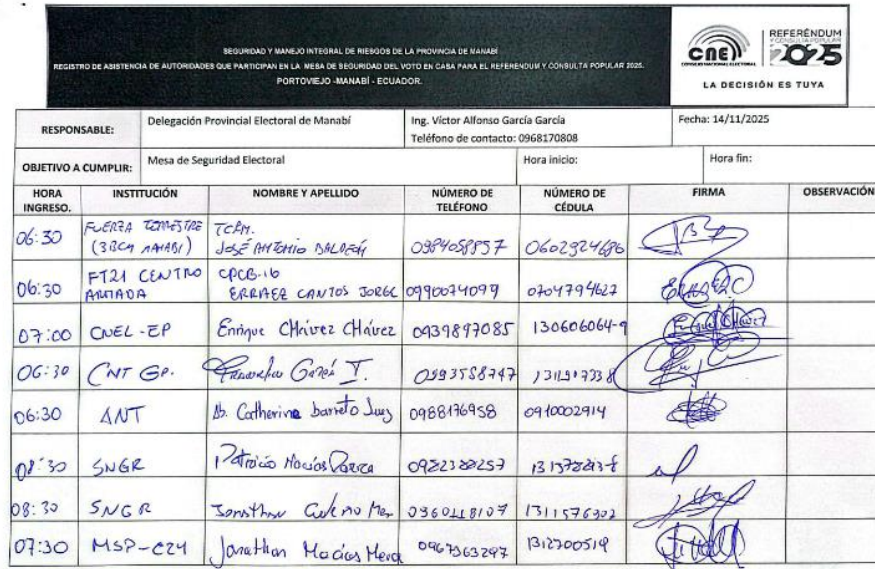 SEGURIDAD Y MANEJO INTEGRAL DE RIESGOS DE LA PROVINCIA DE MANABÍ
REGISTRO DE ASISTENCIA DE AUTORIDADES QUE PARTICIPAN EN LA MESA DE SEGURIDAD DEL VOTO EN CASA PARA EL REFERENDUM Y CONSULTA POPULAR 2025.
PORTOVIEJO -MANABÍ - ECUADOR.
CNE
CONSEJO NACIONAL ELECTORAL
REFERÉNDUM
Y CONSULTA POPULAR
2025
LA DECISIÓN ES TUYA
RESPONSABLE: Delegación Provincial Electoral de Manabí Ing. Víctor Alfonso García García Fecha: 14/11/2025
Teléfono de contacto: 0968170808
OBJETIVO A CUMPLIR: Mesa de Seguridad Electoral Hora inicio: Hora fin:
HORA INGRESO. INSTITUCIÓN NOMBRE Y APELLIDO NÚMERO DE TELÉFONO NÚMERO DE CÉDULA FIRMA OBSERVACIÓN
06:30 FUERZA TERRESTRE (3BCM MANABI) JOSÉ ANTONIO 0984058857 0602924686
06:30 FT21 CENTRO ARMADA CPCB-IG ERRAEZ CANTOS JORGE 0990074099 0704794627
07:00 CNEL-EP Enrique CHávez CHávez 0939897085 130606064-9
06:30 CNT 0993558747
06:30 ANT Ab. Catherine barreto 0988176958 0910002914
08:30 SNGR Patricio Macías
08:30 SNGR Jonathan 1311576902
07:30 MSP-C24 Jonathan Macias Mera 0967363297 1312700519